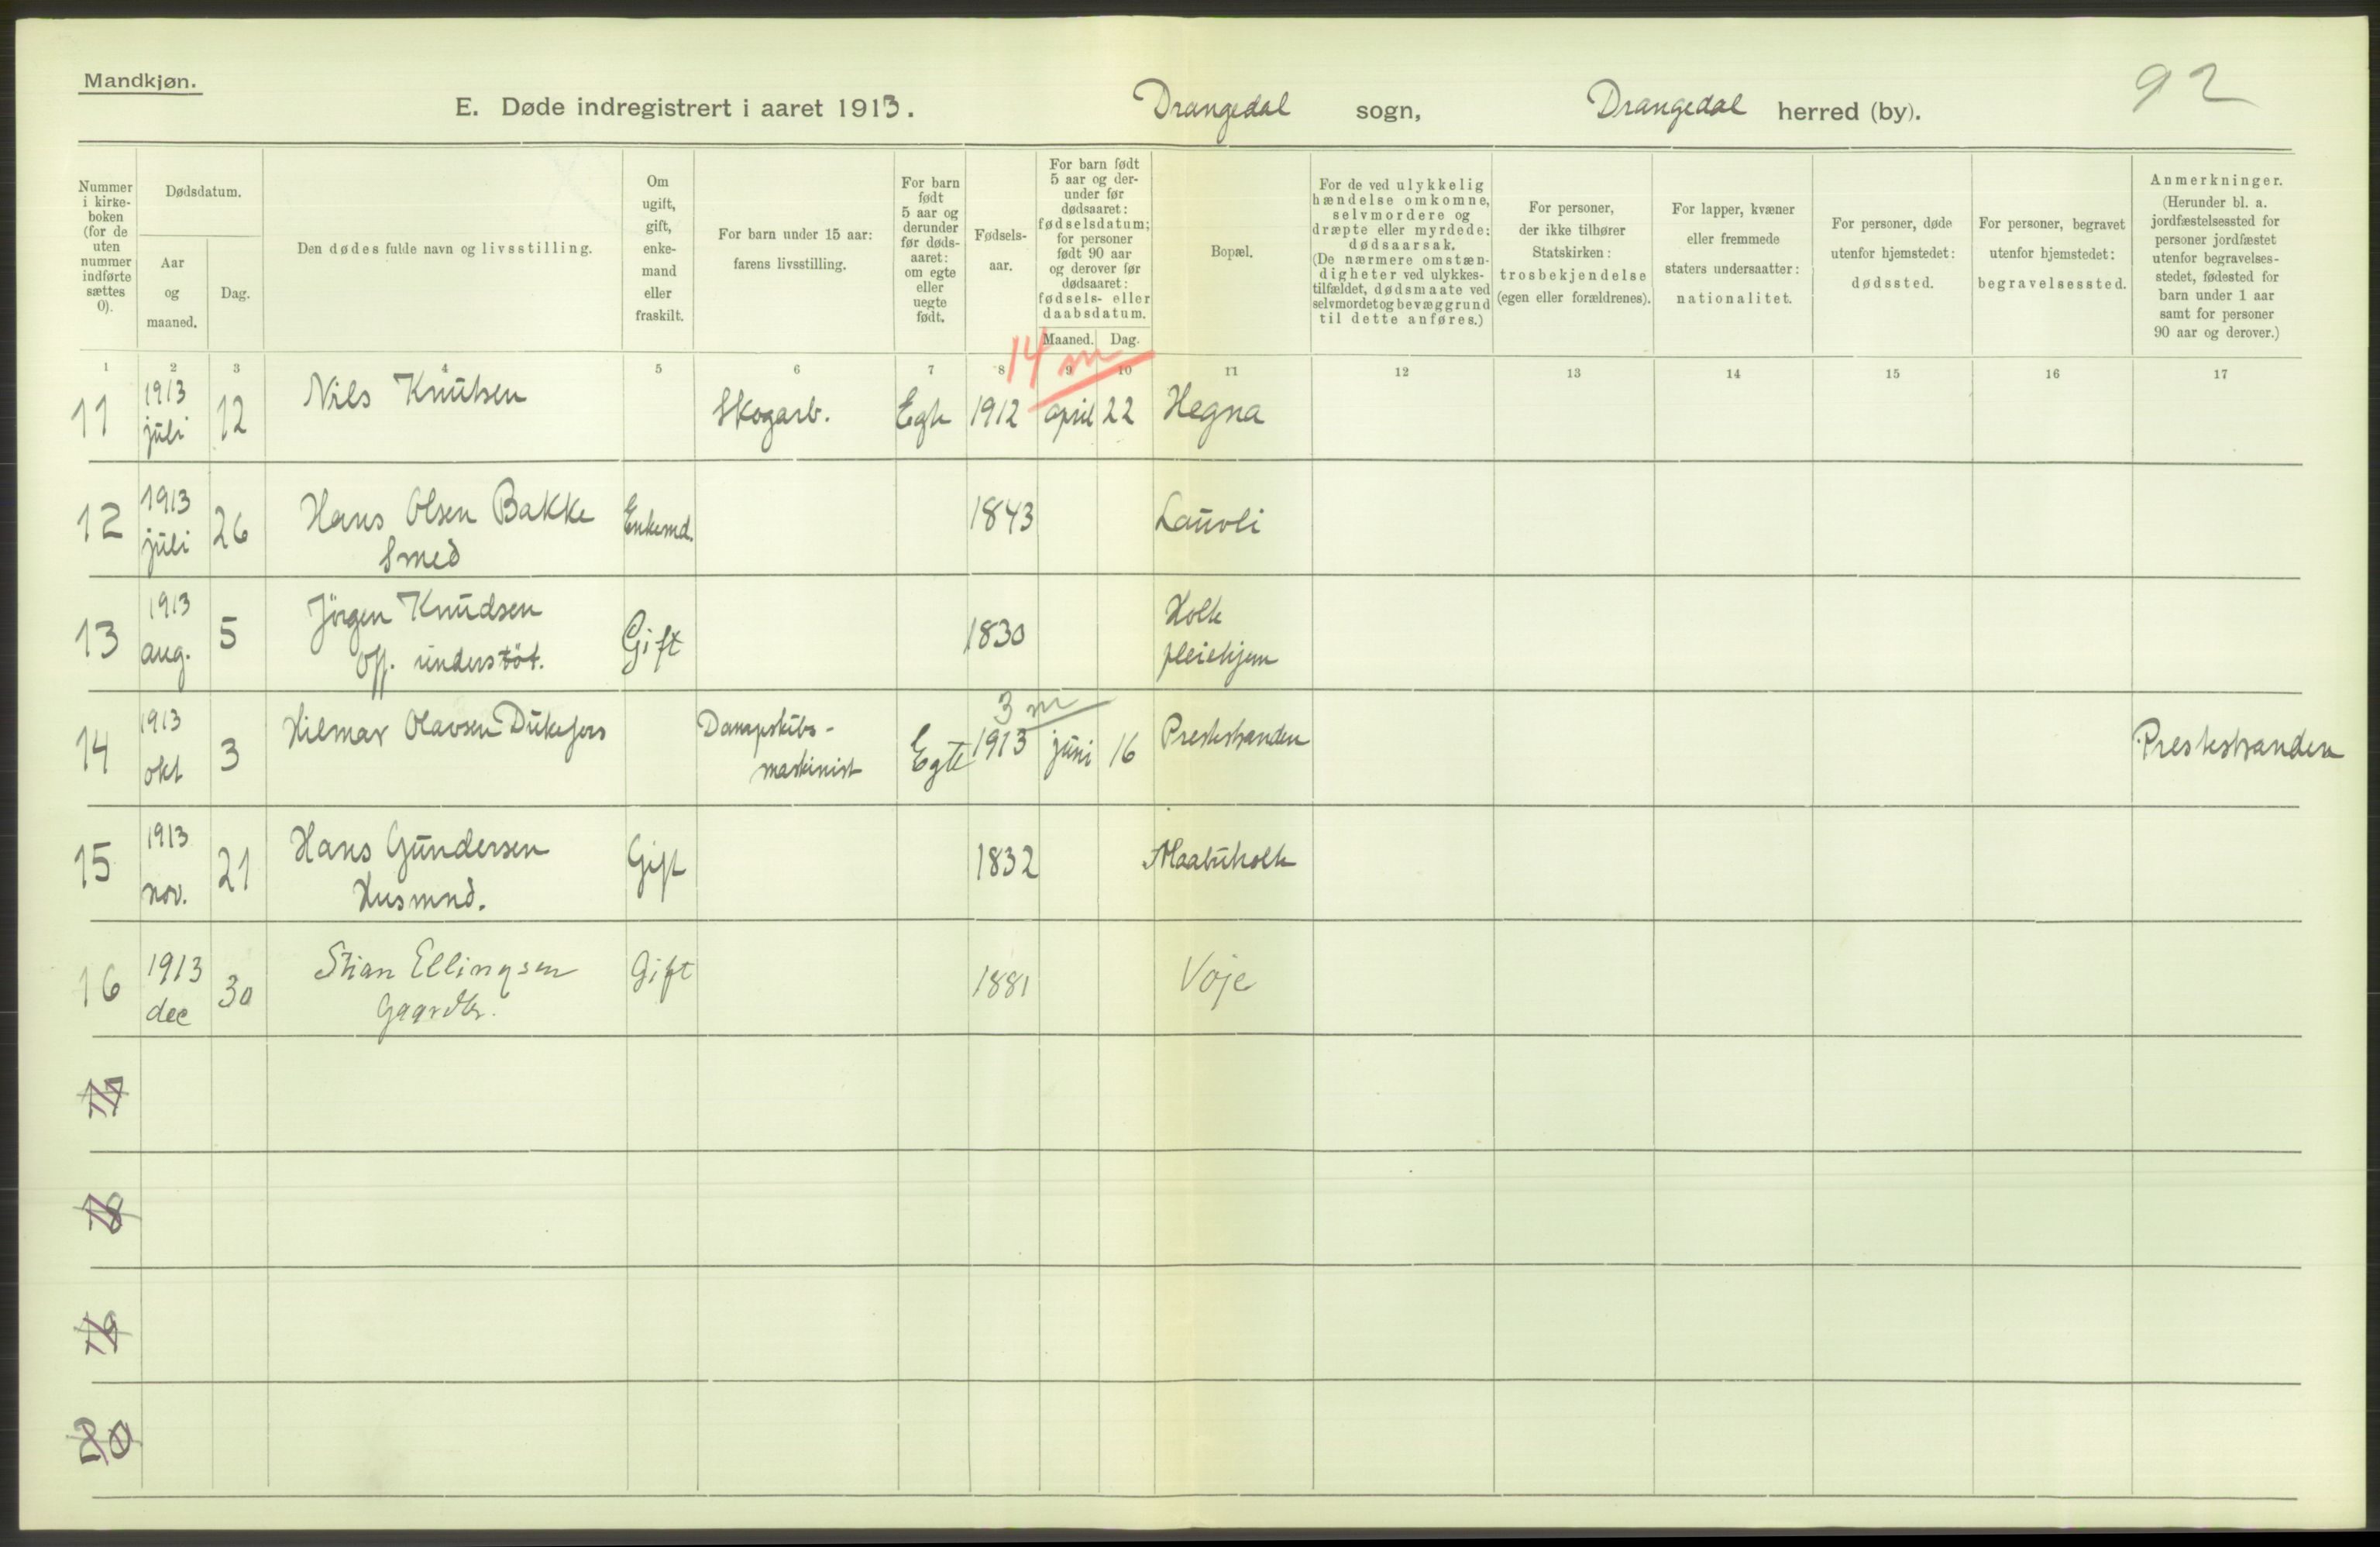 Mandkjøn.
E. Døde indregistrert i aaret 1913. Drangedal sogn, Drangedal herred (by). 92
Nummer i kirkeboken (for de uten nummer indførte sættes 0).
Dødsdatum.
Aar og maaned.
Dag.
Den dødes fulde navn og livsstilling.
Om ugift, gift, enkemand eller fraskilt.
For barn under 15 aar: farens livsstilling.
For barn født 5 aar og derunder før dødsaaret: om egte eller uegte født.
Fødselsaar.
For barn født 5 aar og derunder før dødsaaret: fødselsdatum; for personer født 90 aar og derover før dødsaaret: fødsels- eller daabsdatum.
Maaned. Dag.
Bopæl.
For de ved ulykkelig hændelse omkomne, selvmordere og dræpte eller myrdede: dødsaarsak. (De nærmere omstændigheter ved ulykkestilfældet, dødsmaate ved selvmordet og bevæggrund til dette anføres.)
For personer, der ikke tilhører Statskirken: trosbekjendelse (egen eller forældrenes).
For lapper, kvæner eller fremmede staters undersaatter: nationalitet.
For personer, døde utenfor hjemstedet: dødssted.
For personer, begravet utenfor hjemstedet: begravelsessted.
Anmerkninger. (Herunder bl. a. jordfæstelsessted for personer jordfæstet utenfor begravelsesstedet, fødested for barn under 1 aar samt for personer 90 aar og derover.)
1 2 3 4 5 6 7 8 9 10 11 12 13 14 15 16 17
14 m
11 1913 juli 12 Nils Knutsen Skogarb. Egte 1912 april 22 Hegna
12 1913 juli 26 Hans Olsen Bakke Enkemd. 1843 Lauvli
Smed
13 1913 aug. 5 Jörgen Knudsen Gift 1830 Holte
off. understöt. pleiehjem
3 m
14 1913 okt 3 Hilmar Olavsen Dukefors Dampskibs- Egte 1913 juni 16 Prestestranden Prestestranden
maskinist
15 1913 nov. 21 Hans Gundersen Gift 1832
Husmnd.
16 1913 dec 30 Stian Ellingsen Gift 1881 Voje
Gaardbr.
17
18
20